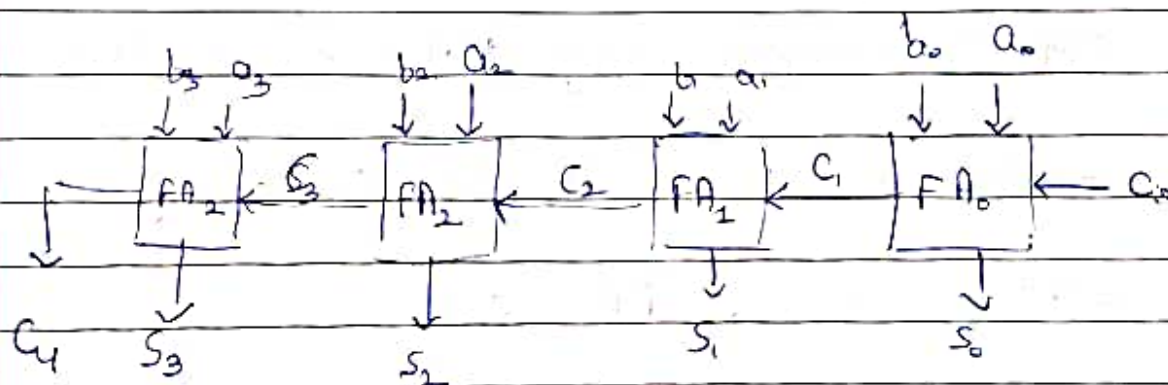 b₀ a₀
b₃ a₃ b₂ a₂ b₁ a₁
FA₂ C₃ FA₂ C₂ FA₁ C₁ FA₀ Cin
C₄ S₃ S₂ S₁ S₀